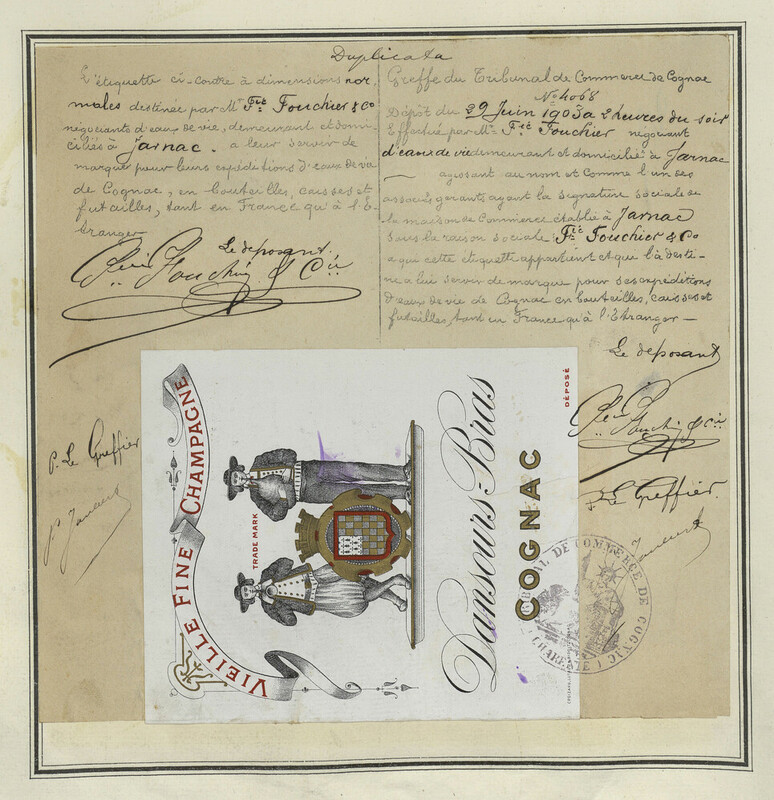 Duplicata
L'étiquette ci-contre à dimensions nor
males destinée par Mr Fié Fouchier & Co
négociants d'eaux de vie, demeurant et domi-
ciliés à Jarnac. a leur servir de
marque pour leurs expéditions d'eaux de vie
de Cognac, en bouteilles, caisses et
futailles, tant en France qu'à l'É-
tranger
Le déposant.
Fouchier & Cie
P. Le Greffier
Greffe du Tribunal de Commerce de Cognac
No 4068
Dépôt du 29 Juin 1903 a 2 heures du soir
Effectué par Mr Fié Fouchier négociant
d'eaux de vie demeurant et domicilié à Jarnac
— agissant au nom et comme l'un des
associés gérants ayant la signature sociale de
la maison de Commerce établie à Jarnac
sous la raison sociale: Fié Fouchier & Co
a qui cette étiquette appartient et qui l'a desti-
née a lui servir de marque pour ses expéditions
d'eaux de vie de Cognac en bouteilles, caisses et
futailles tant en France qu'à l'Étranger —
Le déposant
Fouchier & Cie
P. Le Greffier.
VIEILLE FINE CHAMPAGNE
TRADE MARK
Dansours-Bras
COGNAC
DÉPOSÉ
TRIBUNAL DE COMMERCE DE COGNAC
(CHARENTE)